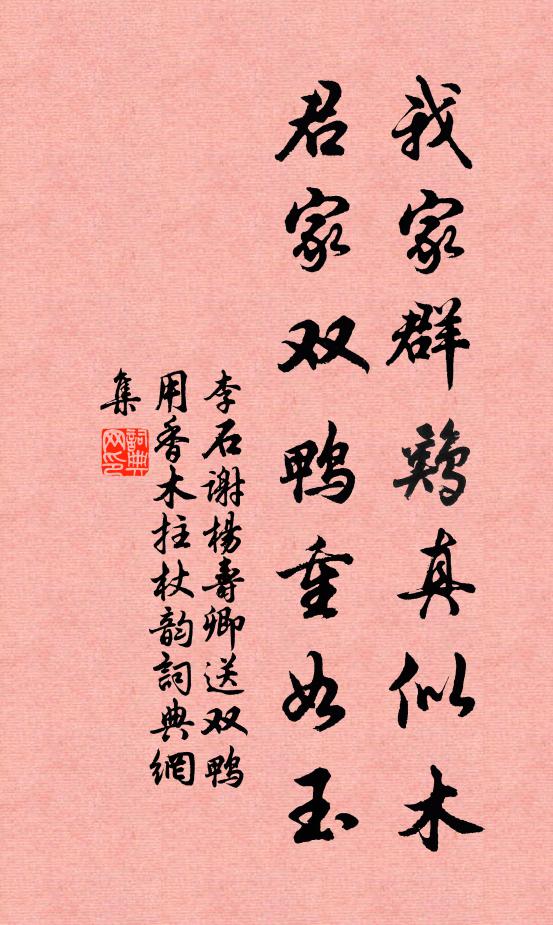 我家群鷄真似木
君家双鸭重如玉
李石谢楊壽卿送双鸭
用香木拄杖韵詞典網
集
詞典
网印